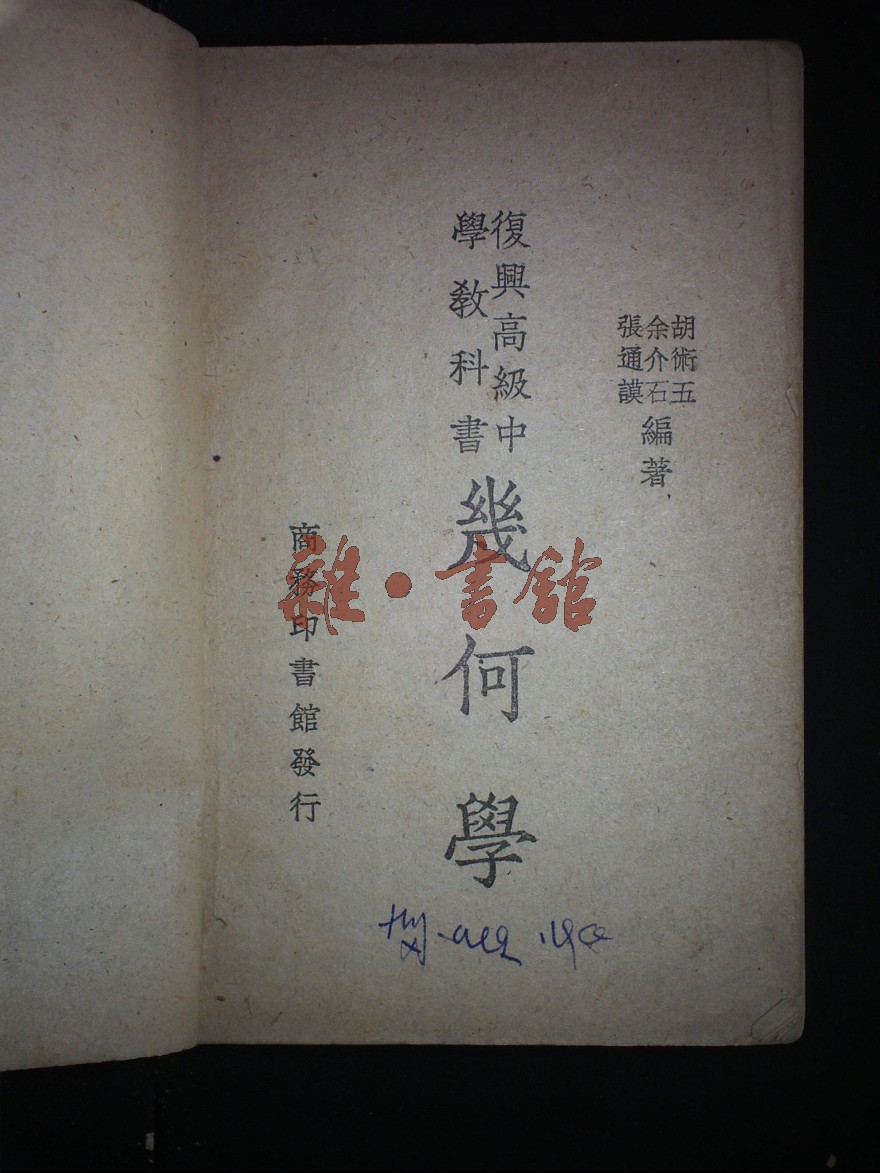 胡術五
余介石
張通謨
編著
復興高級中
學教科書
幾何學
商務印書館發行
雜·書館